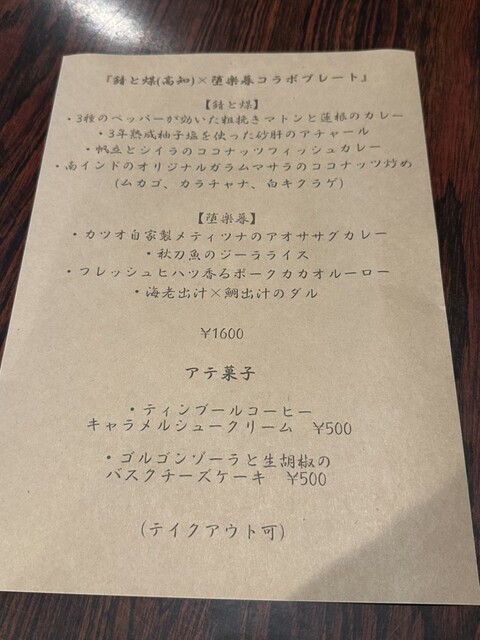 『錆と煤(高知)×堕楽暮コラボプレート』
【錆と煤】
・3種のペッパーが効いた粗挽きマトンと蓮根のカレー
・3年熟成柚子塩を使った砂肝のアチャール
・帆立とシイラのココナッツフィッシュカレー
・南インドのオリジナルガラムマサラのココナッツ炒め
(ムカゴ、カラチャナ、白キクラゲ)
【堕楽暮】
・カツオ自家製メティツナのアオササグカレー
・秋刀魚のジーラライス
・フレッシュヒハツ香るポークカカオルーロー
・海老出汁×鯛出汁のダル
¥1600
アテ菓子
・ティンブールコーヒー
キャラメルシュークリーム ¥500
・ゴルゴンゾーラと生胡椒の
バスクチーズケーキ ¥500
(テイクアウト可)